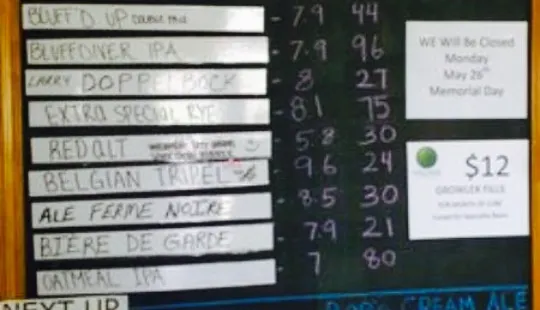 BLUFF'D UP DOUBLE PALE - 7.9 44
BLUFFDIVER IPA - 7.9 96
LARRY DOPPELBOCK - 8 27
EXTRA SPECIAL RYE - 8.1 75
RED ALT 5.8 30
BELGIAN TRIPEL - 9.6 24
ALE FERME NOIRE - 8.5 30
BIÈRE DE GARDE - 7.9 21
OATMEAL IPA - 7 80
NEXT UP
CREAM ALE
WE Will Be Closed
Monday
May 26th
Memorial Day
$12
GROWLER FILLS